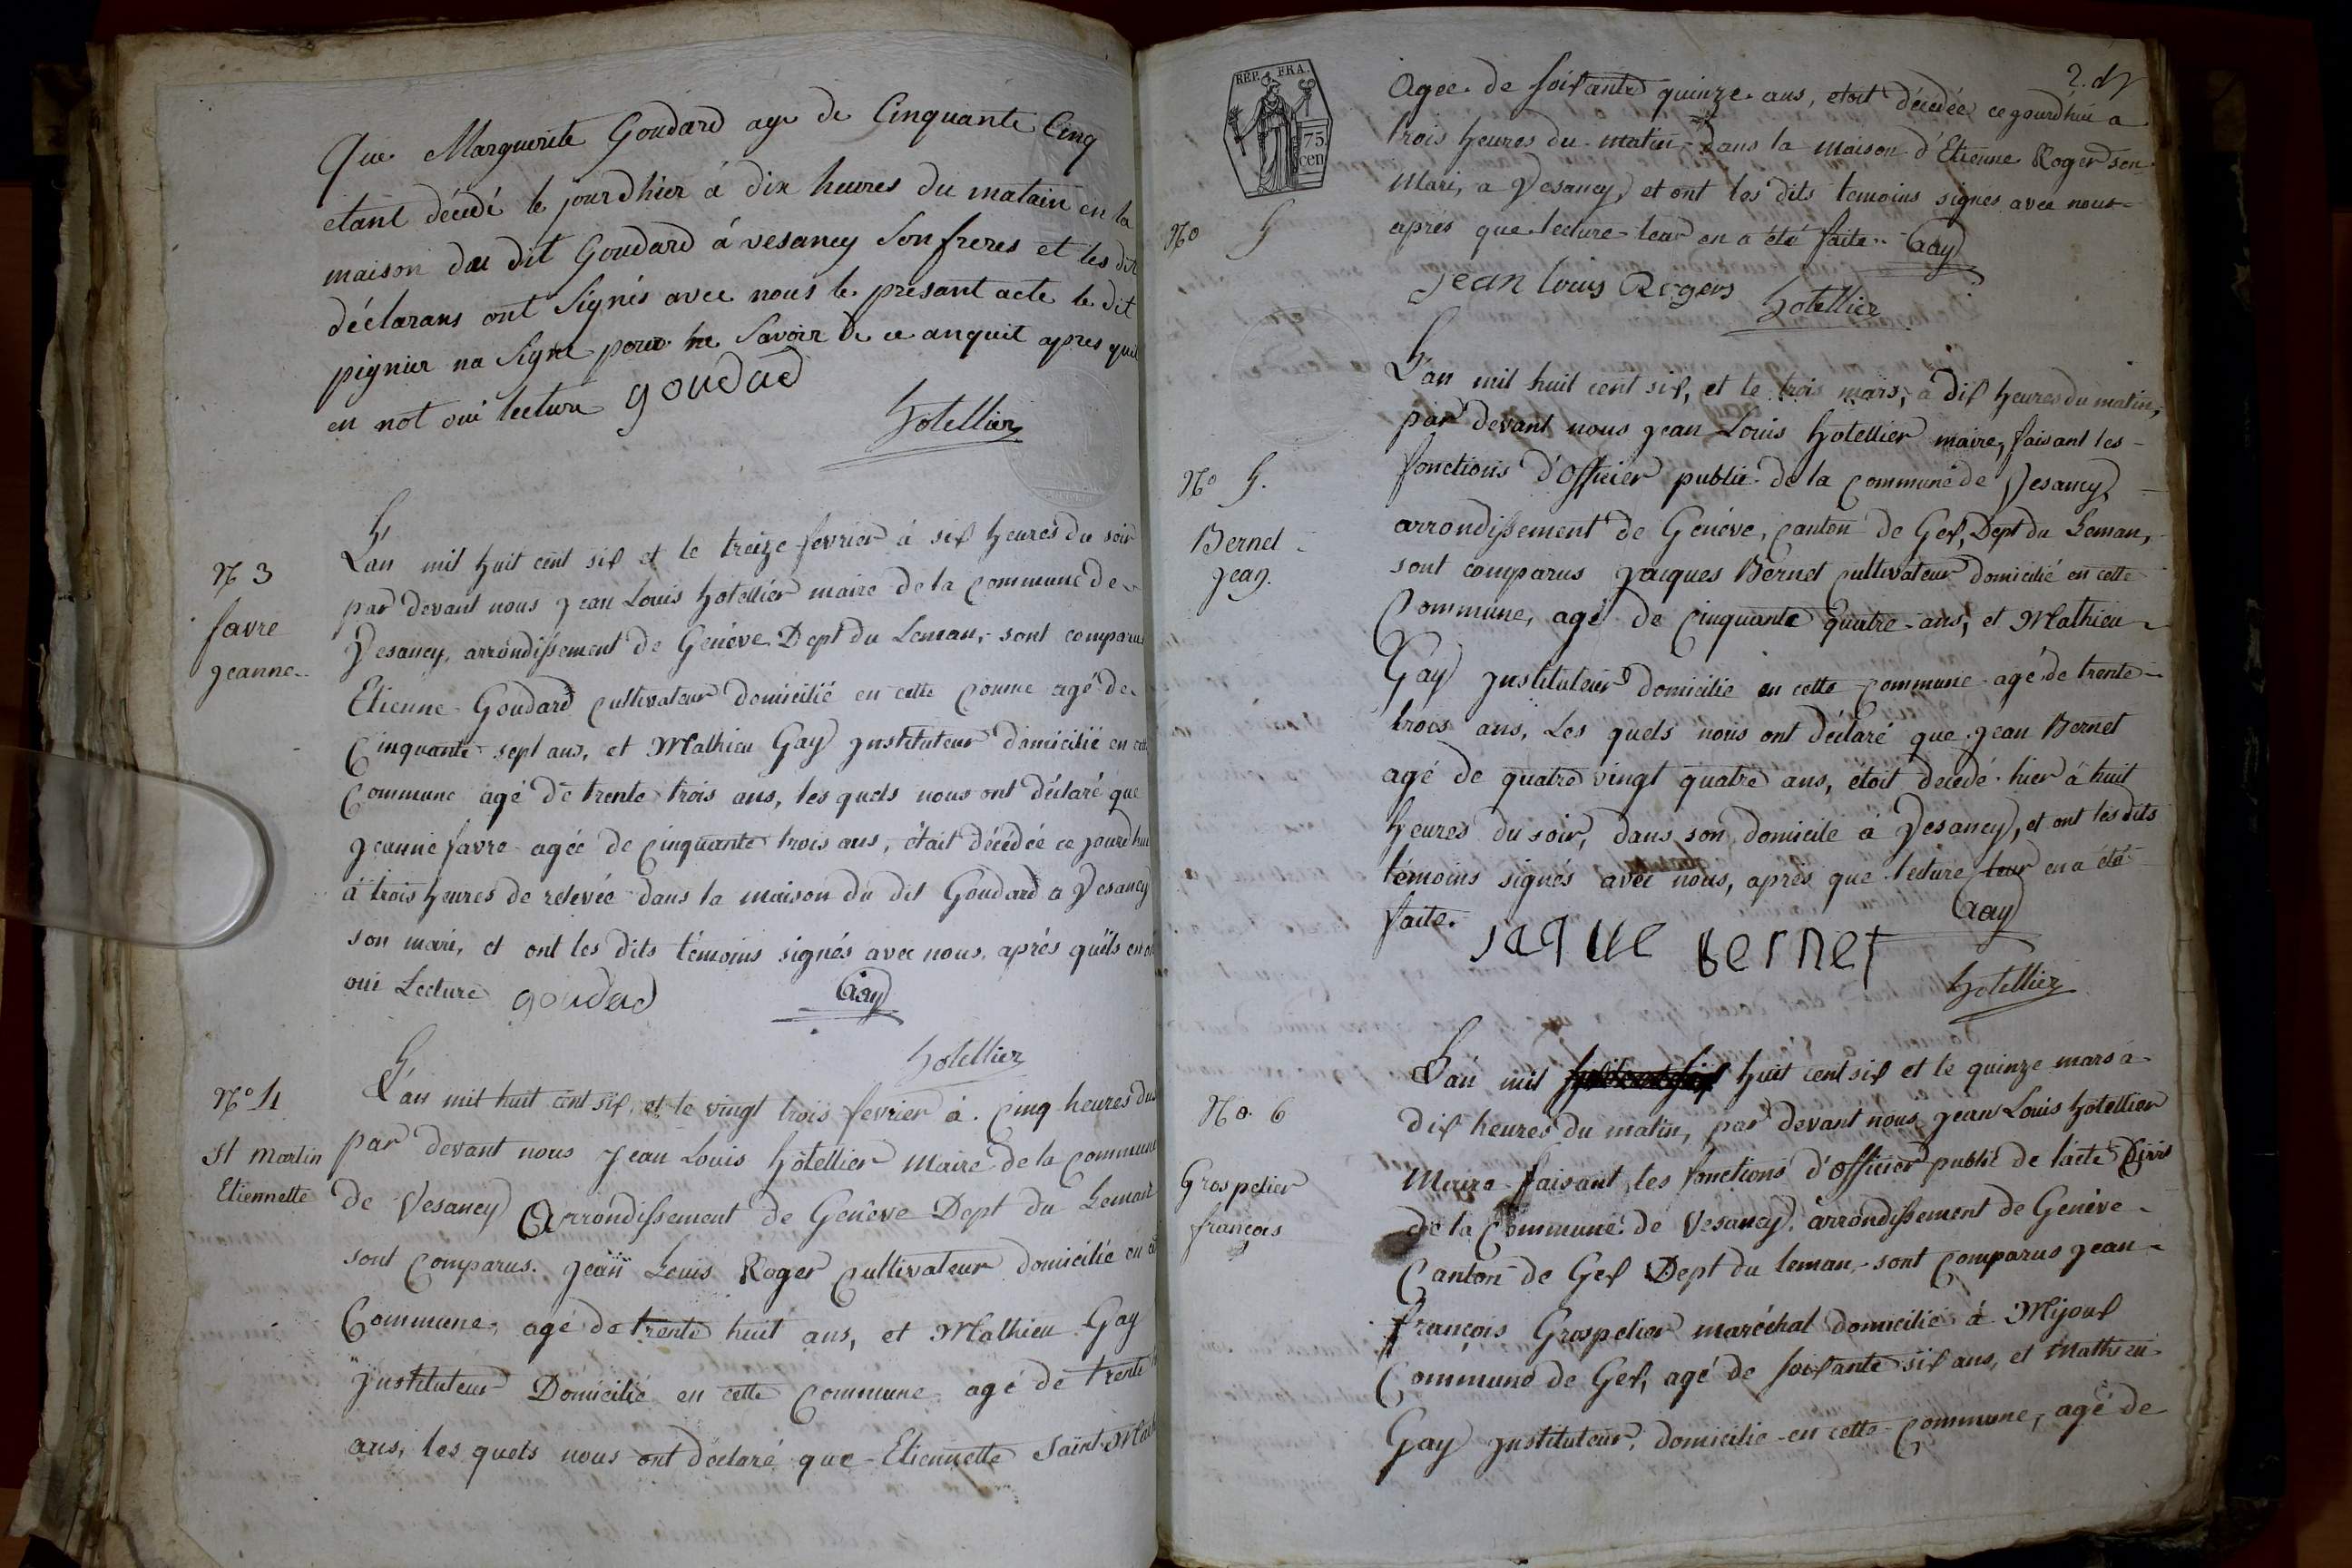 Que Marguerite Goudard age de Cinquante Cinq
etant décédé le jourdhier à dix heures du matain en la
maison du dit Goudard á vesancy son freres et les dit
déclarans ont Signés avec nous le présant acte le dit
pignier na Signé pour ne Savoir de ce anquit apres quil
en not oui lecture goudad
hotellier
N 3
favre
jeanne
L'an mil huit cent six et le treize fevrier à six heures du soir
par devant nous jean Louis hotellier maire de la Commune de
Vesancy, arrondissement de Genève Dept du Leman, sont comparu
Etienne Goudard cultivateur domicilié en cette Comune agé de
Cinquante sept ans, et Mathieu Gay jnstituteur domicilié en cet
Commune agé de trente trois ans, les quels nous ont déclaré que
jeanne favre agée de cinquante trois ans, était décédée ce jourdhui
à trois heures de relevée dans la maison du dit Goudard a Vesancy
son mari, et ont les dits témoins signés avec nous, aprés qu'ils en ont
oui Lecture goudad Gay
hotellier
N° 4
St Martin
Etiennette
L'an mil huit cent six, et le vingt trois fevrier à Cinq heures du
par devant nous jean Louis hotellier Maire de la Commune
de Vesancy Arrondissement de Genève Dept du Leman
sont Comparus. jean Louis Roger Cultivateur domicilié en cet
Commune, agé de trente huit ans, et Mathieu Gay
jnstituteur Domicilié en cette Commune agé de trente
ans, les quels nous ont déclaré que Etiennette Saint Mart
REP. FRA.
75
cen
2.
Agée de soixante quinze ans, etoit décédée cejourdhui a
trois heures du matin dans la maison d'Etienne Roger son
Mari, a Vesancy, et ont les dits temoins signes avec nous
aprés que lecture leur en a été faite. Gay
jean louis Rogers
hotellier
N°
N° 5.
Bernet
jean
L'an mil huit cent six, et le trois mars, à dix heures du matin,
par devant nous jean Louis hotellier maire, faisant les
fonctions d'Officier public de la Commune de Vesancy
arrondissement de Genève, canton de Gex, Dept du Leman,
sont comparus jacques Bernet cultivateur domicilié en cette
Commune, agé de Cinquante quatre ans, et Mathieu
Gay jnstituteur domicilie en cette Commune agé de trente
trois ans, Les quels nous ont déclaré que jean Bernet
agé de quatre vingt quatre ans, etoit decedé hier à huit
heures du soir, dans son domicile à Vesancy, et ont les dits
témoins signés avec nous, après que lecture leur en a été
faite. Gay
jaque bernet
hotellier
No. 6
Grospelier
françois
L'an mil huit cent six et le quinze mars a
dix heures du matin, par devant nous jean Louis hotellier
Maire faisant les fonctions d'officier public de l'acte Civis
de la Commune de Vesancy, arrondissement de Genève
Canton de Gex Dept du leman, sont Comparus jean
françois Grospelier maréchal domicilié à Mijoux
Commune de Gex, agé de soixante six ans, et Mathieu
Gay jnstituteur, domicilie en cette Commune, agé de